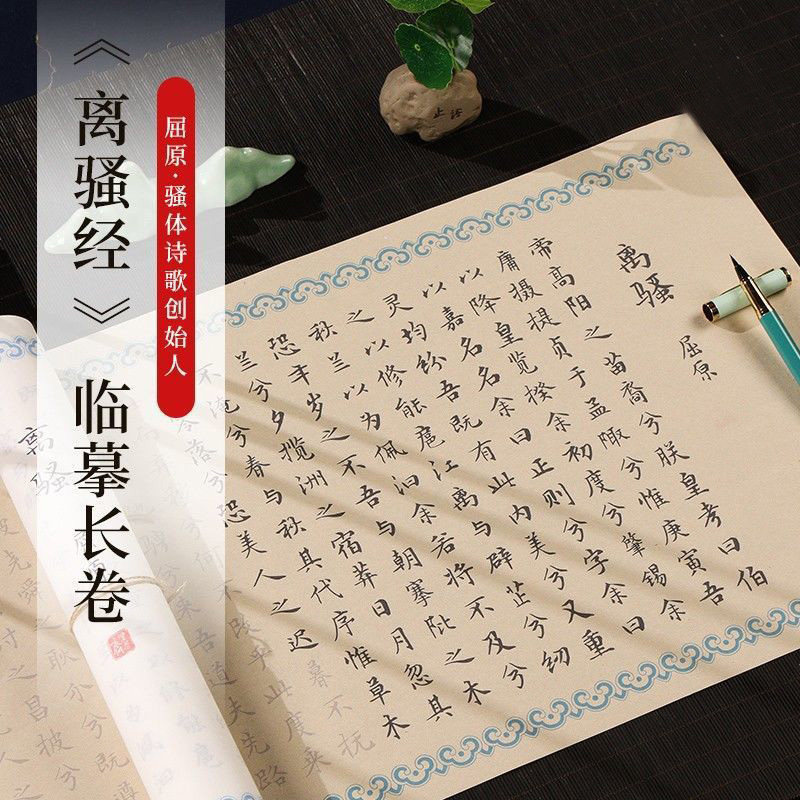 《离骚经》临摹长卷
屈原·骚体诗歌创始人
止语
离骚
屈原
帝高阳之苗裔兮朕皇考曰伯
庸摄提贞于孟陬兮惟庚寅吾
以降皇览揆余初度兮肇锡余
以嘉名名余曰正则兮字余曰
灵均纷吾既有此内美兮又重
之以修能扈江离与辟芷兮纫
秋兰以为佩汩余若将不及兮
恐年岁之不吾与朝搴阰之木
兰兮夕揽洲之宿莽日月忽其
不淹兮春与秋其代序惟草木
零落兮恐美人之迟暮不抚
离骚